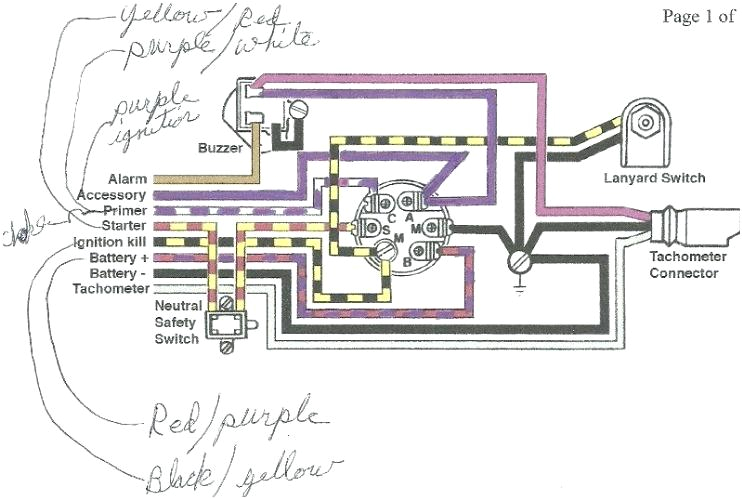 yellow/Red
Page 1 of
purple/white
purple
ignition
Buzzer
Lanyard Switch
Alarm
Accessory
Primer
choke
Starter
Ignition kill
Battery +
Battery -
Tachometer
C
A
S
M
M
B
Tachometer
Connector
Neutral
Safety
Switch
Red/purple
Black/yellow